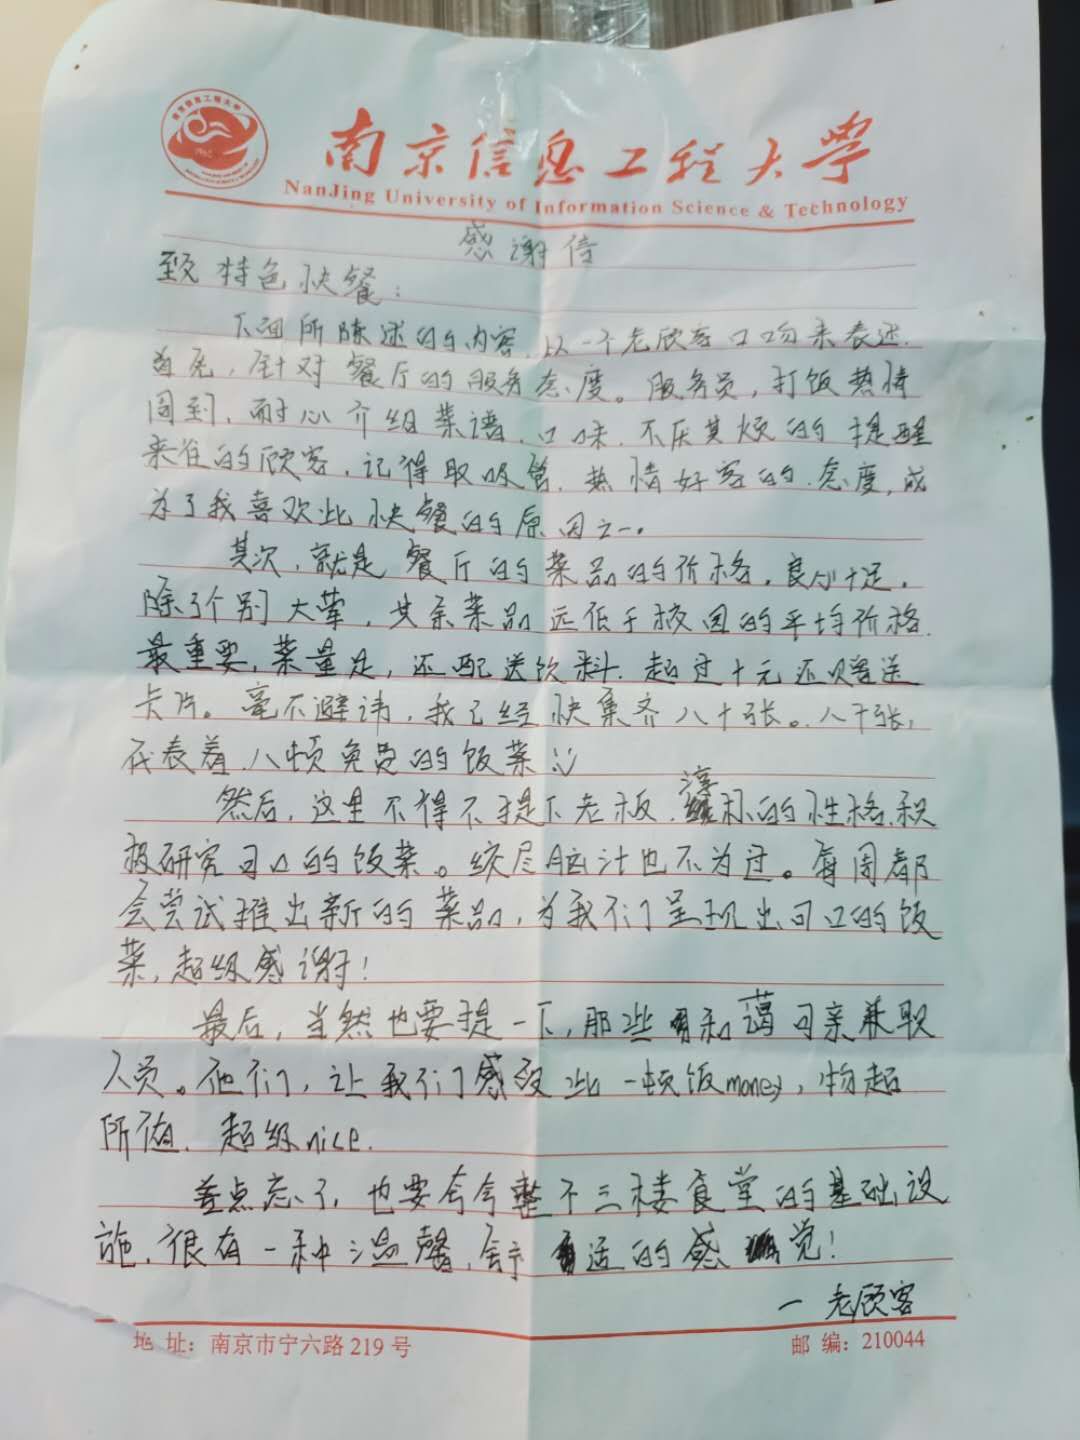 南京信息工程大学
NanJing University of Information Science & Technology
感谢信
致特色快餐：
下面所陈述的内容，以一个老顾客口吻来表述.
首先，针对餐厅的服务态度。服务员，打饭热情
周到，耐心介绍菜谱，口味，不厌其烦的提醒
来往的顾客，记得取吸管. 热情好客的态度，成
为了我喜欢此快餐的原因之一。
其次，就是餐厅的菜品的价格，良心十足，
除了个别大荤，其余菜品远低于校园的平均价格.
最重要，菜量足，还配送饮料. 超过十元还赠送
卡片。毫不避讳，我已经快集齐八十张。八十张，
代表着八顿免费的饭菜
然后，这里不得不提下老板，淳朴的性格，积
极研究可口的饭菜。绞尽脑汁也不为过。每周都
会尝试推出新的菜品，为我们呈现出可口的饭
菜，超级感谢！
最后，当然也要提一下，那些和蔼可亲兼职
人员。他们，让我们感受此一顿饭money，物超
所值. 超级nice.
差点忘了，也要夸夸整个三楼食堂的基础设
施，很有一种温馨，舒适的感觉！
一老顾客
地 址：南京市宁六路219号
邮 编：210044